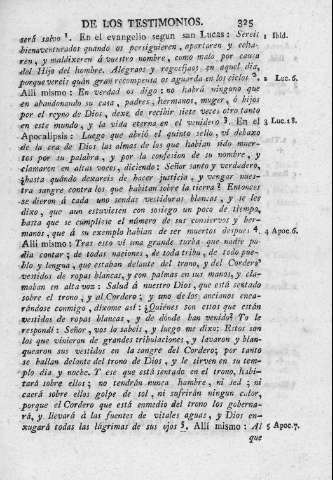 DE LOS TESTIMONIOS. 325
será salvo 1. En el evangelio segun san Lucas: Sereis 1 Ibid.
bienaventurados quando os persiguieren, apartaren y echa-
ren, y maldixeren á vuestro nombre, como malo por causa
del Hijo del hombre. Alegraos y regocijaos en aquel dia,
porque vereis quán gran recompensa os aguarda en los cielos 2. 2 Luc.6.
Allí mismo: En verdad os digo: no habrá ninguno que
en abandonando su casa, padres, hermanos, muger, ó hijos
por el reyno de Dios, dexe de recibir siete veces otro tanto
en este mundo, y la vida eterna en el venidero 3. En el 3 Luc.18.
Apocalipsis: Luego que abrió el quinto sello, ví debaxo
de la ara de Dios las almas de los que habian sido muer-
tos por su palabra, y por la confesion de su nombre, y
clamaron en altas voces, diciendo: Señor santo y verdadero,
¿hasta quándo dexareis de hacer justicia, y vengar nues-
tra sangre contra los que habitan sobre la tierra? Entonces
se dieron á cada uno sendas vestiduras blancas, y se les
dixo, que aun estuviesen con sosiego un poco de tiempo,
hasta que se cumpliese el número de sus conservos y her-
manos, que á su exemplo habian de ser muertos despues 4. 4 Apoc.6.
Allí mismo: Tras esto ví una grande turba que nadie po-
dia contar; de todas naciones, de toda tribu, de todo pue-
blo y lengua, que estaban delante del trono, y del Cordero
vestidos de ropas blancas, y con palmas en sus manos, y cla-
maban en alta voz: Salud á nuestro Dios, que está sentado
sobre el trono, y al Cordero; y uno de los ancianos enca-
rándose conmigo, díxome así: ¿Quiénes son estos que están
vestidos de ropas blancas, y de dónde han venido? Yo le
respondí: Señor, vos lo sabeis, y luego me dixo: Estos son
los que vinieron de grandes tribulaciones, y lavaron y blan-
quearon sus vestidos en la sangre del Cordero; por tanto
se hallan delante del trono de Dios, y le sirven en su tem-
plo dia y noche. Y ese que está sentado en el trono, habi-
tará sobre ellos; no tendrán nunca hambre, ni sed; ni
caerá sobre ellos golpe de sol, ni sufrirán ningun calor,
porque el Cordero que está enmedio del trono los goberna-
rá, y llevará á las fuentes de vitales aguas, y Dios en-
xugará todas las lágrimas de sus ojos 5. Allí mismo: Al 5 Apoc.7.
que